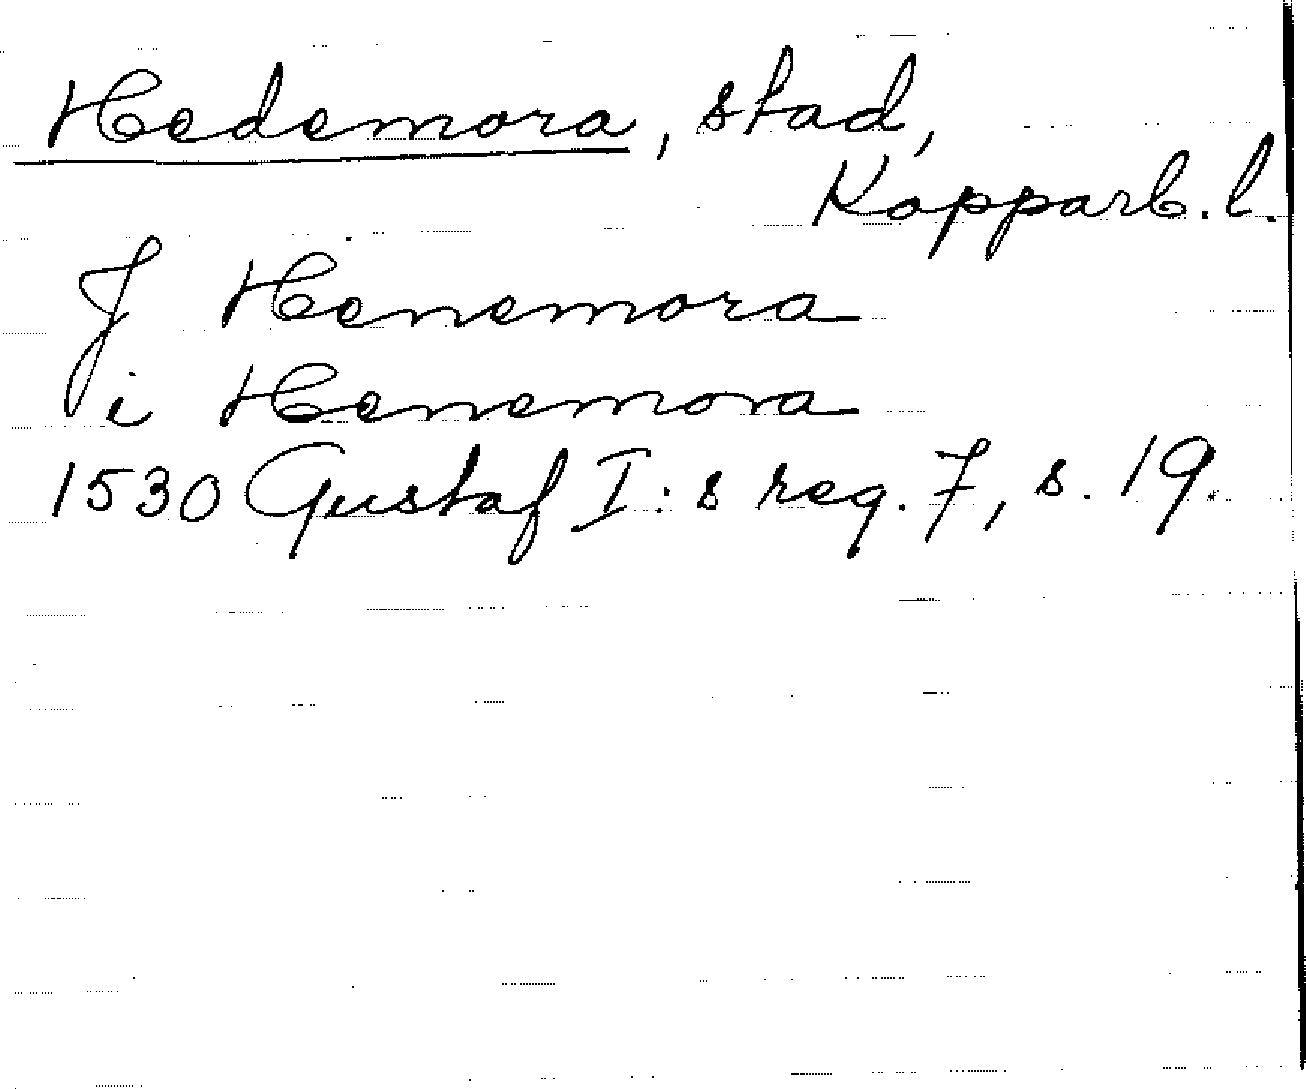 Hedemora, stad,
Kopparb. l.
J Henemora
i Henemora
1530 Gustaf I:s reg. 7, s. 19.